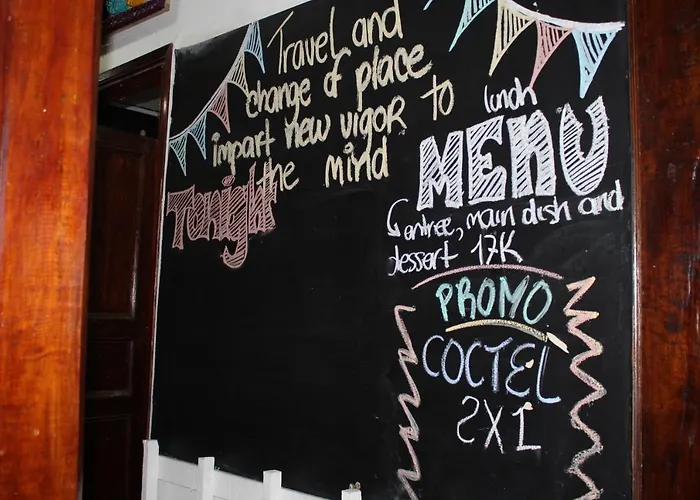 Travel and
change of place
impart new vigor to
the mind
Tonight
lunch
MENU
entree, main dish and
dessert 17K
PROMO
COCTEL
2X1